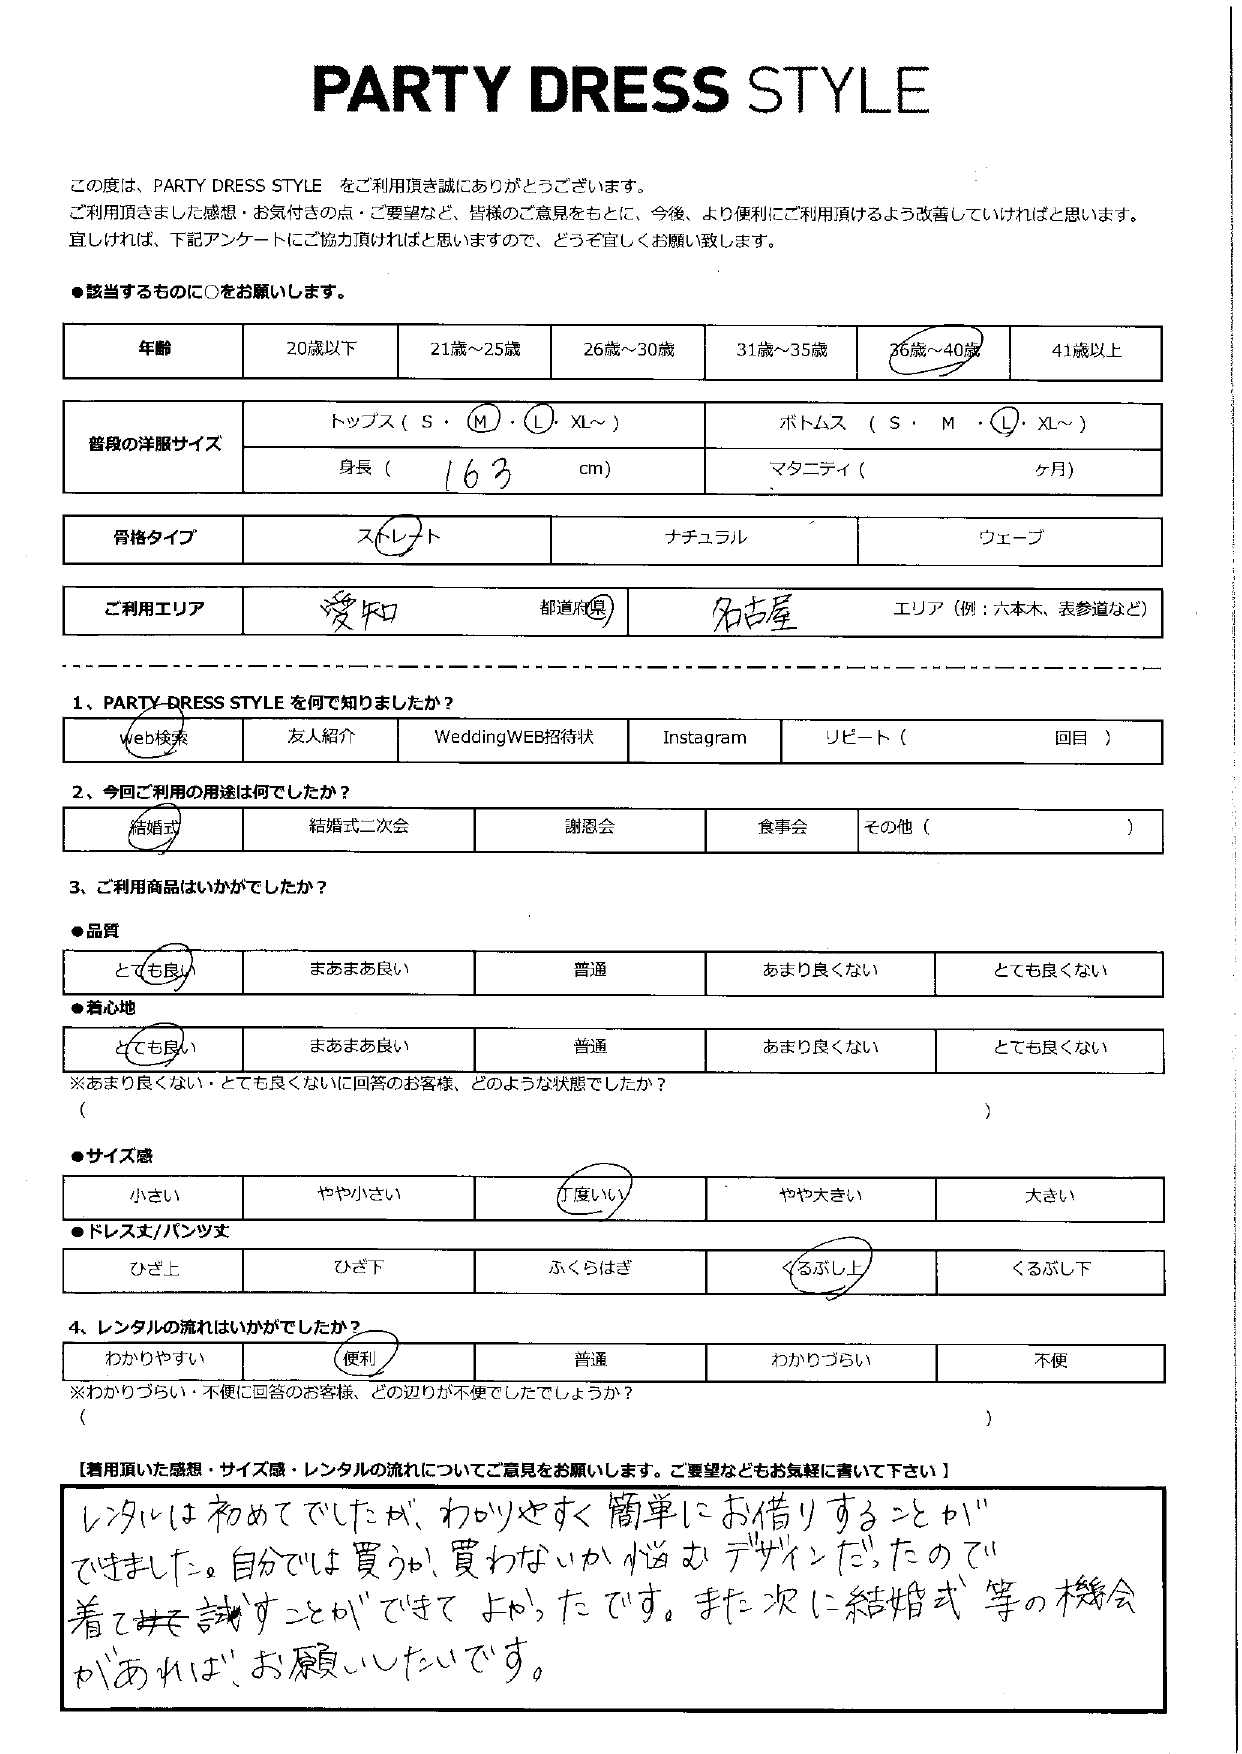 PARTY DRESS STYLE
この度は、PARTY DRESS STYLE をご利用頂き誠にありがとうございます。
ご利用頂きました感想・お気付きの点・ご要望など、皆様のご意見をもとに、今後、より便利にご利用頂けるよう改善していければと思います。
宜しければ、下記アンケートにご協力頂ければと思いますので、どうぞ宜しくお願い致します。
●該当するものに○をお願いします。
年齢 20歳以下 21歳～25歳 26歳～30歳 31歳～35歳 36歳～40歳 41歳以上
普段の洋服サイズ トップス ( S ・ M ・ L ・ XL～ ) ボトムス ( S ・ M ・ L ・ XL～ )
身長 ( 163 cm) マタニティ ( ヶ月)
骨格タイプ ストレート ナチュラル ウェーブ
ご利用エリア 愛知 都道府県 名古屋 エリア（例：六本木、表参道など）
1、PARTY DRESS STYLE を何で知りましたか？
web検索 友人紹介 WeddingWEB招待状 Instagram リピート ( 回目 )
2、今回ご利用の用途は何でしたか？
結婚式 結婚式二次会 謝恩会 食事会 その他 ( )
3、ご利用商品はいかがでしたか？
●品質
とても良い まあまあ良い 普通 あまり良くない とても良くない
●着心地
とても良い まあまあ良い 普通 あまり良くない とても良くない
※あまり良くない・とても良くないに回答のお客様、どのような状態でしたか？
( )
●サイズ感
小さい やや小さい 丁度いい やや大きい 大きい
●ドレス丈/パンツ丈
ひざ上 ひざ下 ふくらはぎ くるぶし上 くるぶし下
4、レンタルの流れはいかがでしたか？
わかりやすい 便利 普通 わかりづらい 不便
※わかりづらい・不便に回答のお客様、どの辺りが不便でしたでしょうか？
( )
【着用頂いた感想・サイズ感・レンタルの流れについてご意見をお願いします。ご要望などもお気軽に書いて下さい】
レンタルは初めてでしたが、わかりやすく簡単にお借りすることが
できました。自分では買うか、買わないか悩むデザインだったので
着て試すことができてよかったです。また次に結婚式等の機会
があれば、お願いしたいです。